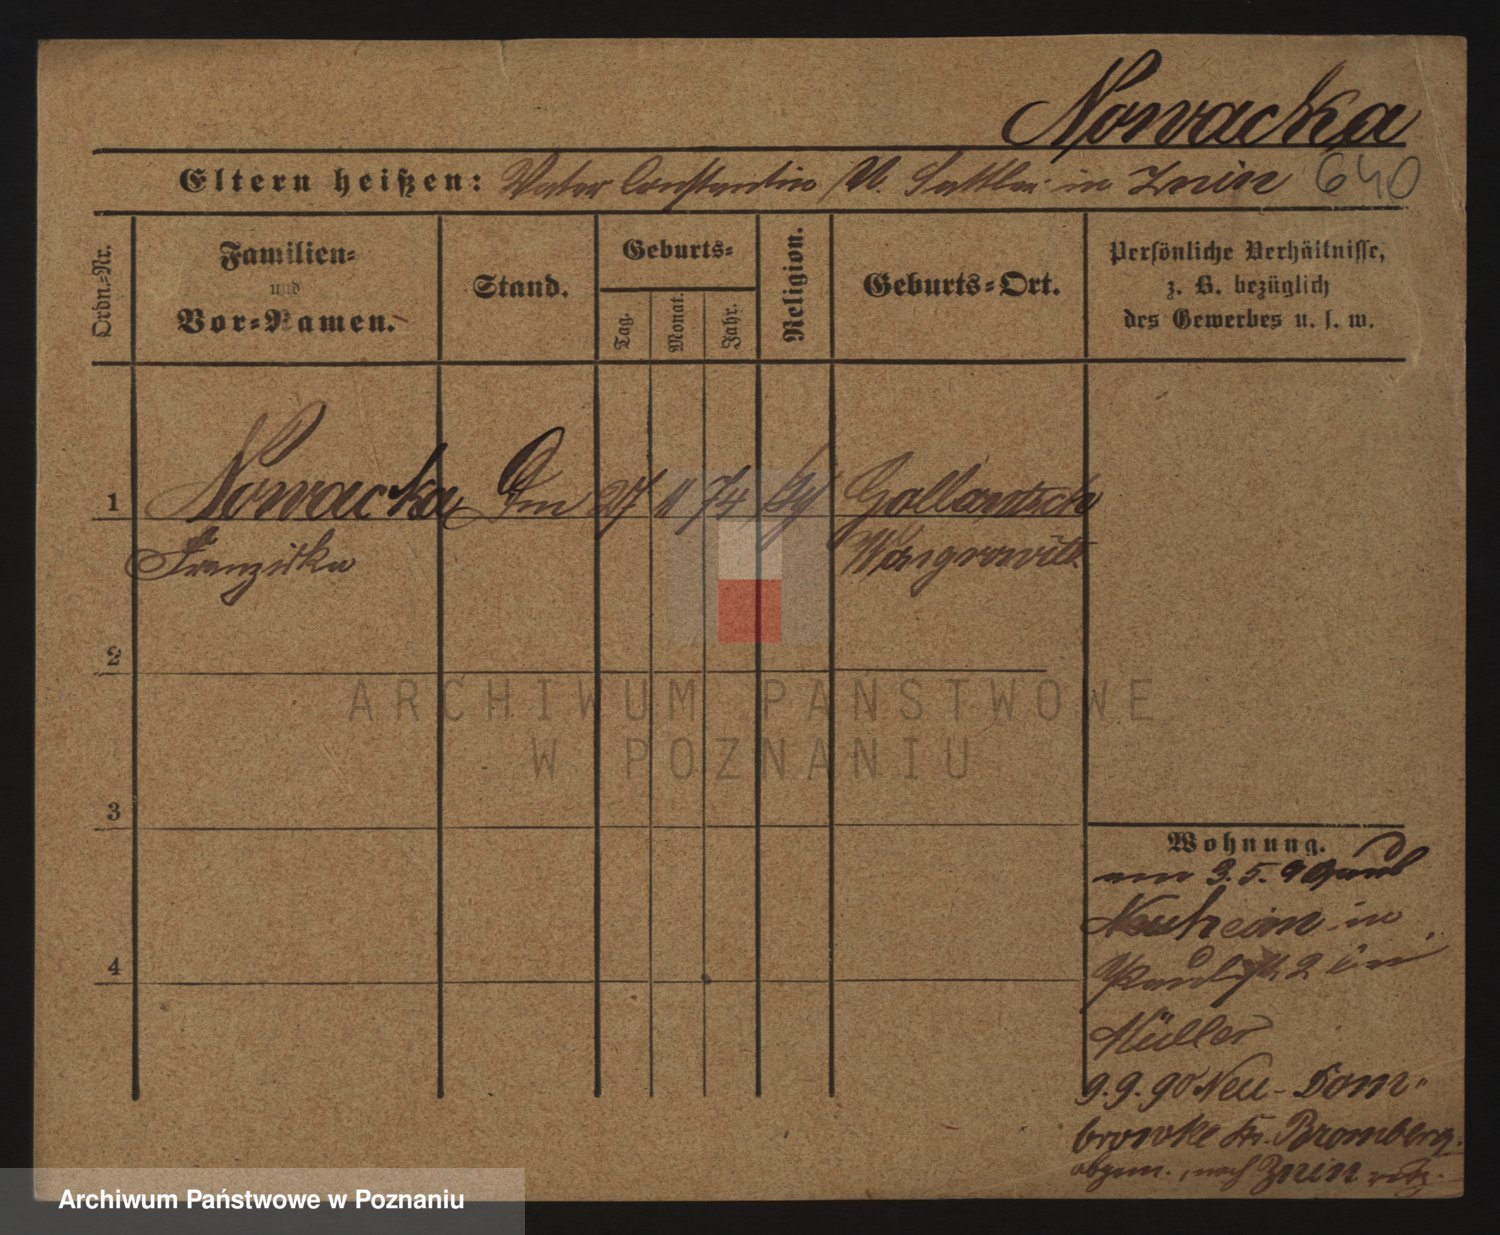 Nowacka
Eltern heißen: Vater Constantin N. Sattler in Znin 640
Ordn.-Nr.
Familien-
und
Vor-Namen.
Stand.
Geburts-
Tag.
Monat.
Jahr.
Religion.
Geburts-Ort.
Persönliche Verhältnisse,
z. B. bezüglich
des Gewerbes u. s. w.
1 Nowacka 27 11 74 Gollantsch
Franziska Wongrowitz
2
3
4
Wohnung.
3. 5. 90
Neuheim in
2
Müller
9. 9. 90 Neu-Dom-
browke Kr. Bromberg.
abgem. nach Znin
ARCHIWUM PAŃSTWOWE
W POZNANIU
Archiwum Państwowe w Poznaniu